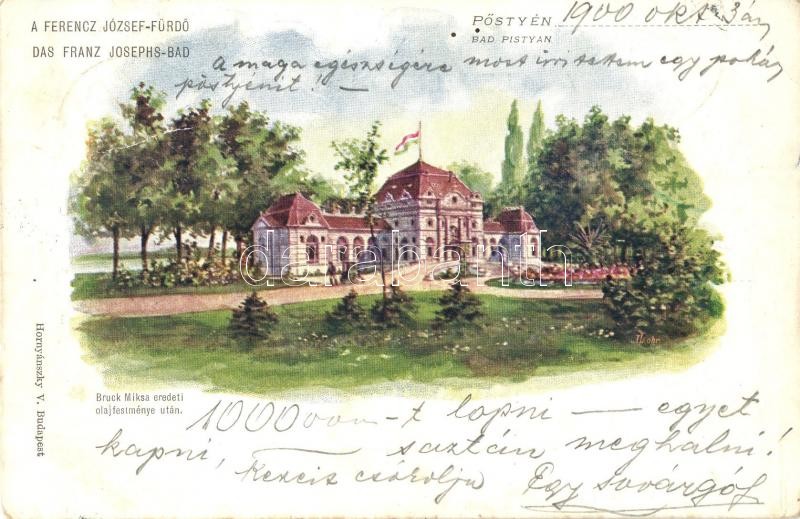 A FERENCZ JÓZSEF-FÜRDŐ
DAS FRANZ JOSEPHS-BAD
PŐSTYÉN,
BAD PISTYAN,
1900 okt 3án
A maga egészségére most ürítettem egy pohár
pöstyénit! —
darabanth
Bruck Miksa eredeti
olajfestménye után.
Hornyánszky V. Budapest
1000000-t lopni — egyet
kapni, — saztán meghalni!
Kezeis csókolja
Egy sovárgó